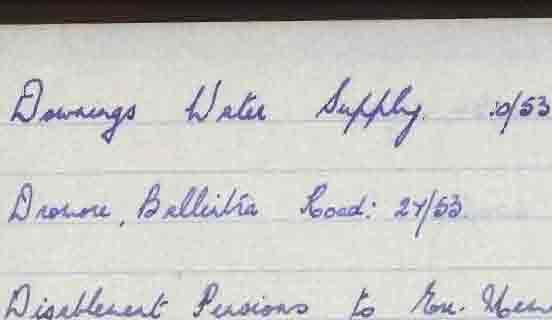 Downings Water Supply. 10/53
Dromore, Ballintra Road: 27/53.
Disablement Pensions to